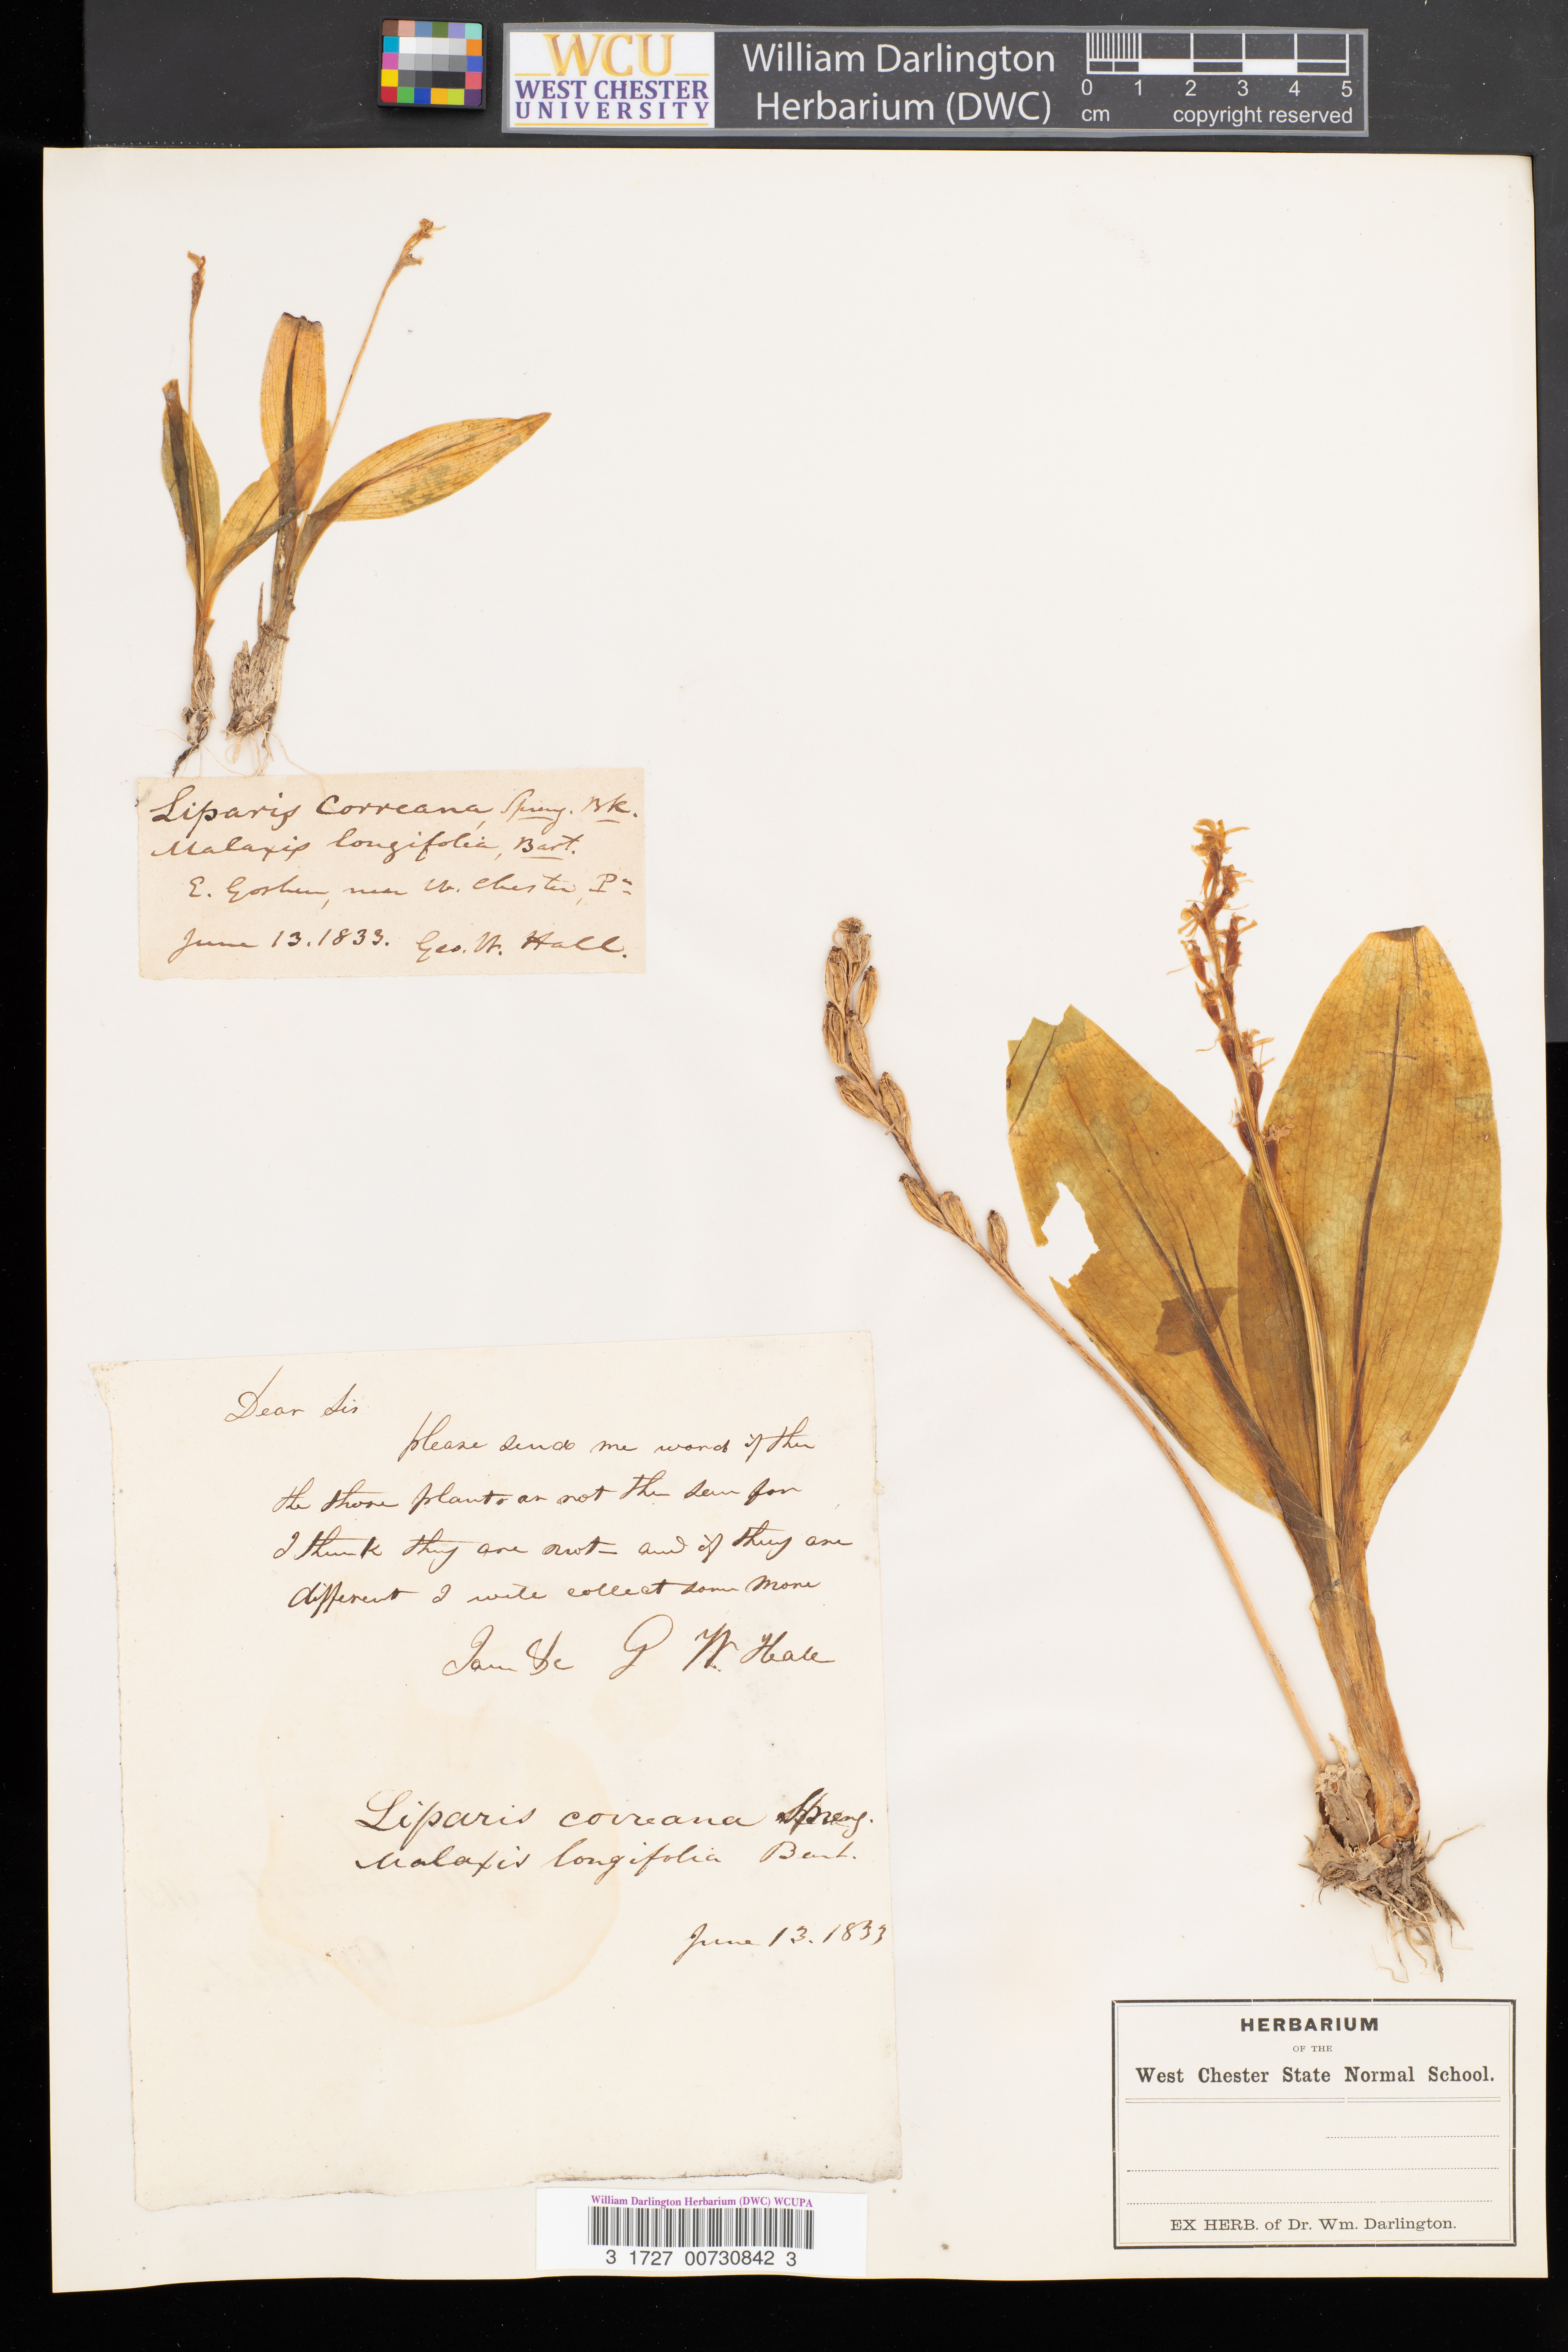 WCU
WEST CHESTER
UNIVERSITY
William Darlington
Herbarium (DWC)
0 1 2 3 4 5
cm copyright reserved
Liparis Correana, Spreng. Bk.
Malaxis longifolia, Bart.
E. Goshen, near W. Chester, Pa
June 13. 1833. Geo. W. Hall.
Dear Sir
please send me word if
the those plants ar not the same for
I think they are not and if they are
different I wile collect some more
I am &c G W. Hall
Liparis correana Spreng.
Malaxis longifolia Bart.
June 13. 1833
HERBARIUM
OF THE
West Chester State Normal School.
EX HERB. of Dr. Wm. Darlington.
William Darlington Herbarium (DWC) WCUPA
3 1727 00730842 3